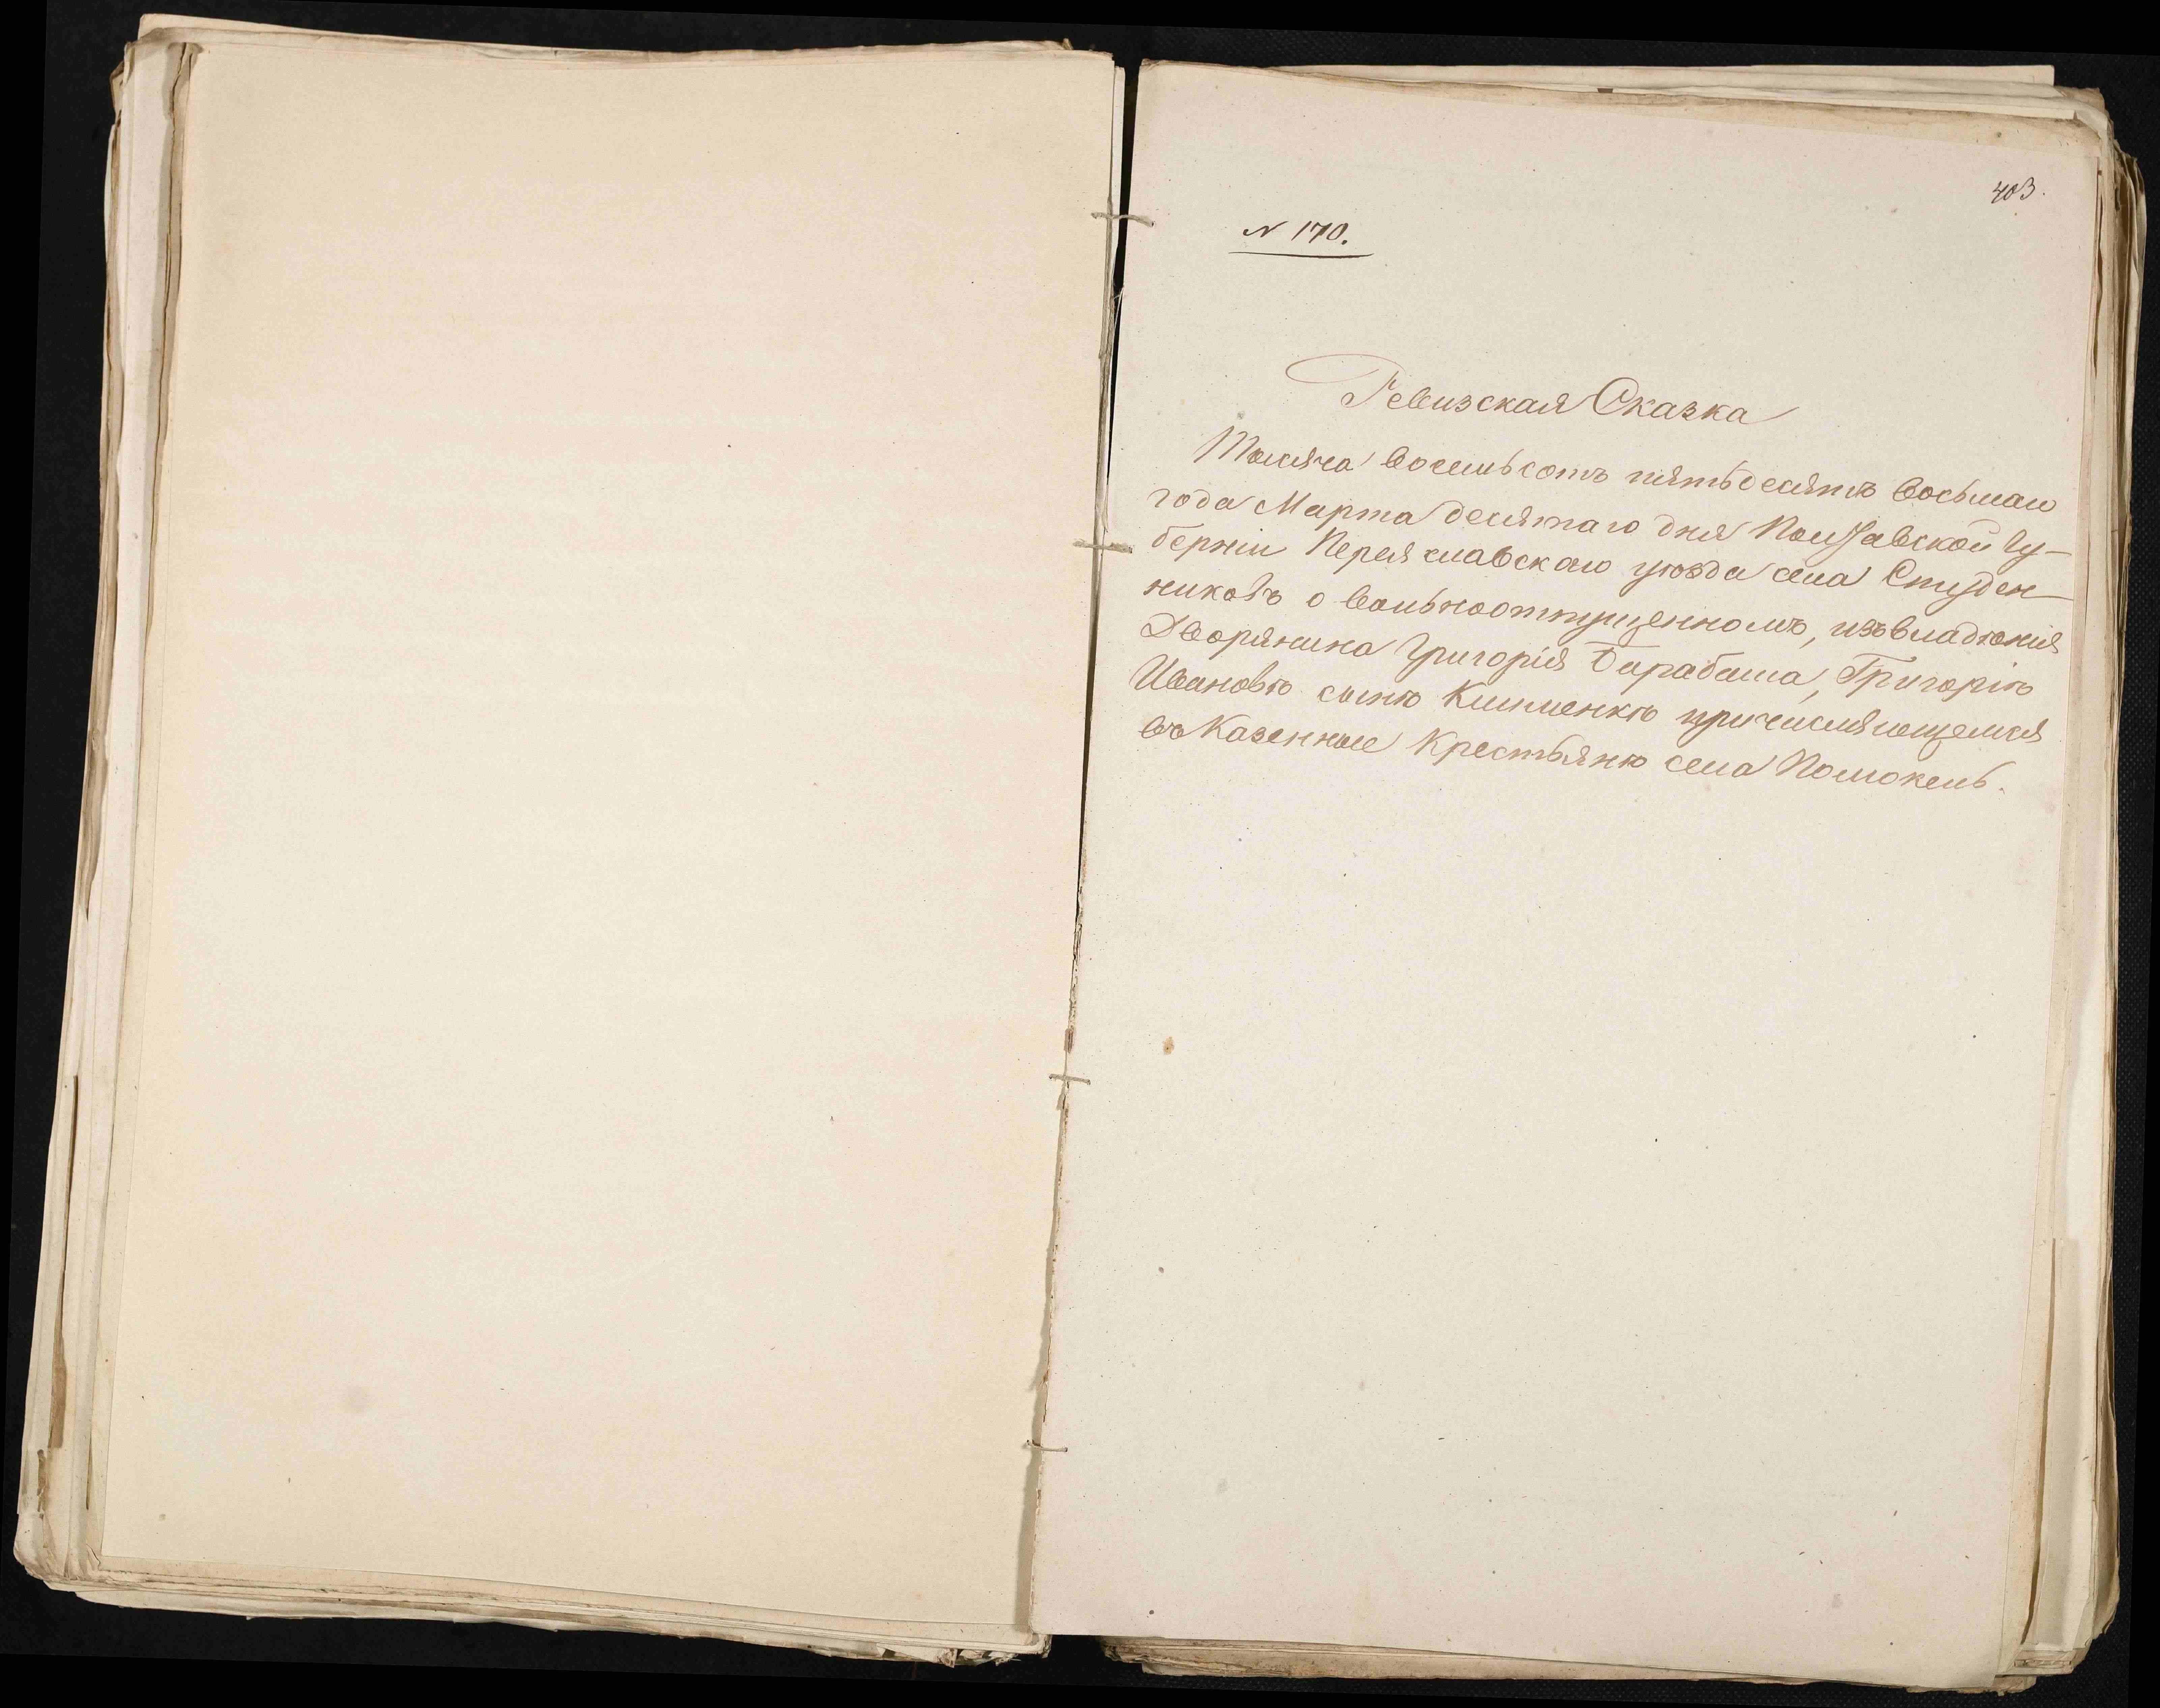 403.
N 170.
Ревизская Сказка
Тысяча восемьсотъ пятьдесятъ восьмаго
года Марта десятаго дня Полтавской Гу-
берніи Переяславскаго уѣзда села Студен-
никовъ о вольноотпущенномъ, изъ владѣнія
Дворянина Григорія Барабаша, Григоріѣ
Ивановѣ сынѣ Клименкѣ причисляющемся
въ Казенные Крестьяне села Помоклъ.